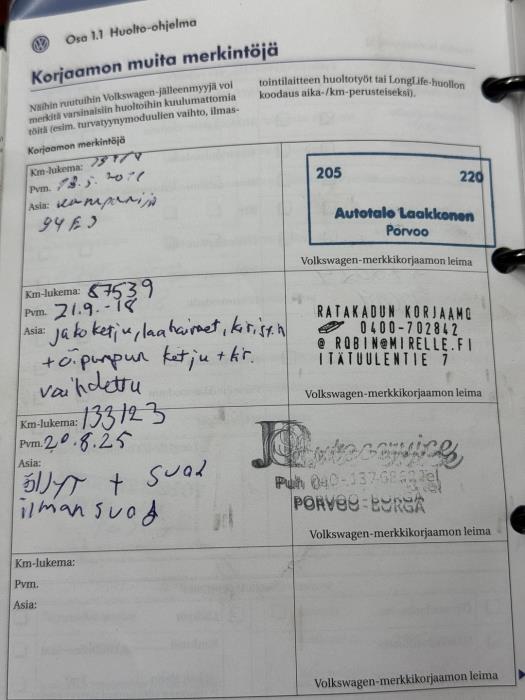 Osa 1.1 Huolto-ohjelma
Korjaamon muita merkintöjä
Näihin ruutuihin Volkswagen-jälleenmyyjä voi
merkitä varsinaisiin huoltoihin kuulumattomia
töitä (esim. turvatyynymoduulien vaihto, ilmas-
tointilaitteen huoltotyöt tai LongLife-huollon
koodaus aika-/km-perusteiseksi).
Korjaamon merkintöjä
Km-lukema:
Pvm.
Asia: kampanja
94E3
205 220
Autotalo Laakkonen
Porvoo
Volkswagen-merkkikorjaamon leima
Km-lukema: 87539
Pvm. 21.9.-18
Asia: jakoketju, laahaimet, kirist.n
+ ö.pumpun ketju + kir.
vaihdettu
RATAKADUN KORJAAMO
0400-702842
@ ROBIN@MIRELLE.FI
ITÄTUULENTIE 7
Volkswagen-merkkikorjaamon leima
Km-lukema: 133123
Pvm. 20.8.25
Asia:
öljyt + suod
ilman suod
Autoservice
Puh 040-
PORVOO - BORGÅ
Volkswagen-merkkikorjaamon leima
Km-lukema:
Pvm.
Asia:
Volkswagen-merkkikorjaamon leima